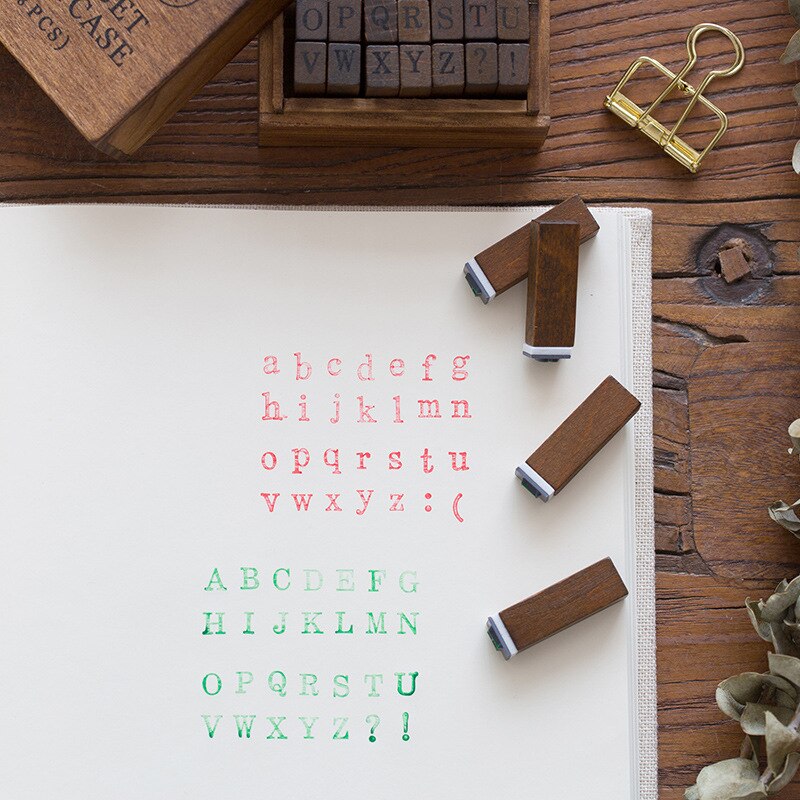 CASE
PCS)
OPQRSTU
VWXYZ?!
abcdefg
hijklmn
opqrstu
vwxyz:(
ABCDEFG
HIJKLMN
OPQRSTU
VWXYZ?!